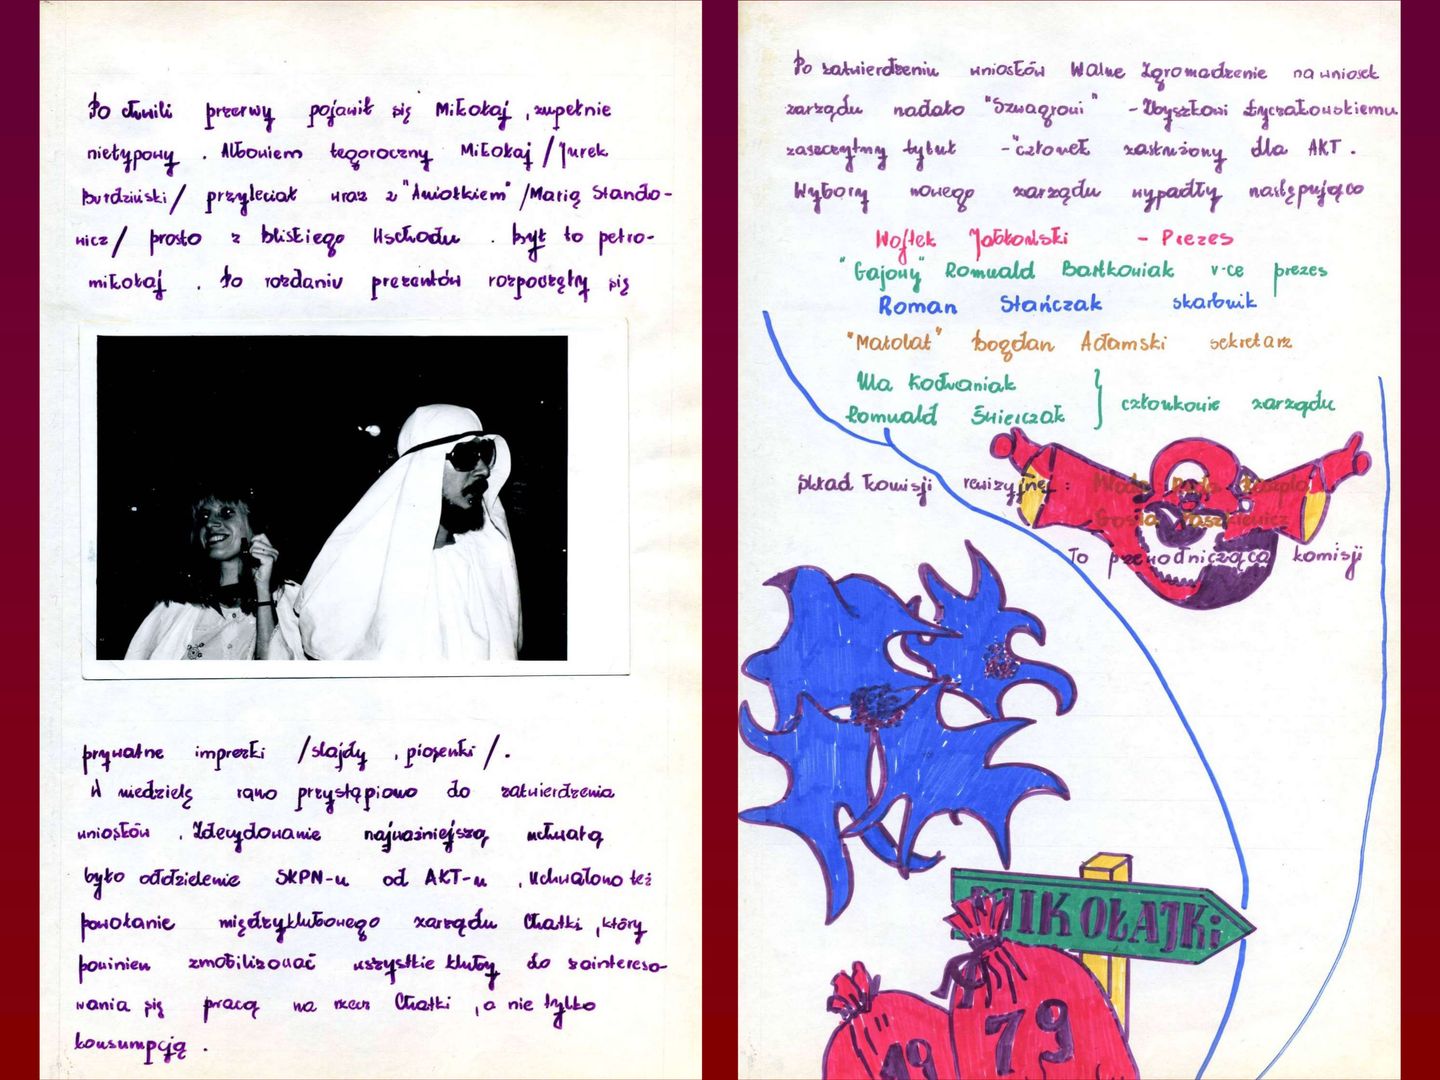 Po chwili przerwy pojawił się Mikołaj , zupełnie
nietypowy . Albowiem tegoroczny Mikołaj / Jurek
Burdziński / przyleciał wraz z "Aniołkiem" / Marią Stando-
wicz / prosto z bliskiego Wschodu . Był to petro-
mikołaj . Po rozdaniu prezentów rozpoczęły się
prywatne imprezki / slajdy , piosenki / .
W niedzielę rano przystąpiono do zatwierdzenia
wniosków . Zdecydowanie najważniejszą uchwałą
było oddzielenie SKPN-u od AKT-u , Uchwalono też
powołanie międzyklubowego zarządu Chatki , który
powinien zmobilizować wszystkie kluby do zaintereso-
wania się pracą na rzecz Chatki , a nie tylko
konsumpcją .
Po zatwierdzeniu wniosków Walne Zgromadzenie na wniosek
zarządu nadało "Szwagrowi" - Zbyszkowi Łyczakowskiemu
zaszczytny tytuł - "członek zasłużony dla AKT .
Wybory nowego zarządu wypadły następująco
Wojtek Jabłoński - Prezes
"Gajowy" Romuald Bartkowiak v-ce prezes
Roman Stańczak skarbnik
"Małolat" Bogdan Adamski sekretarz
Ula Kodwaniak
Romuald Świerczak } członkowie zarządu
Skład komisji rewizyjnej :
Gosia Taszkiewicz
To przewodnicząca komisji
MIKOŁAJKi
19 79